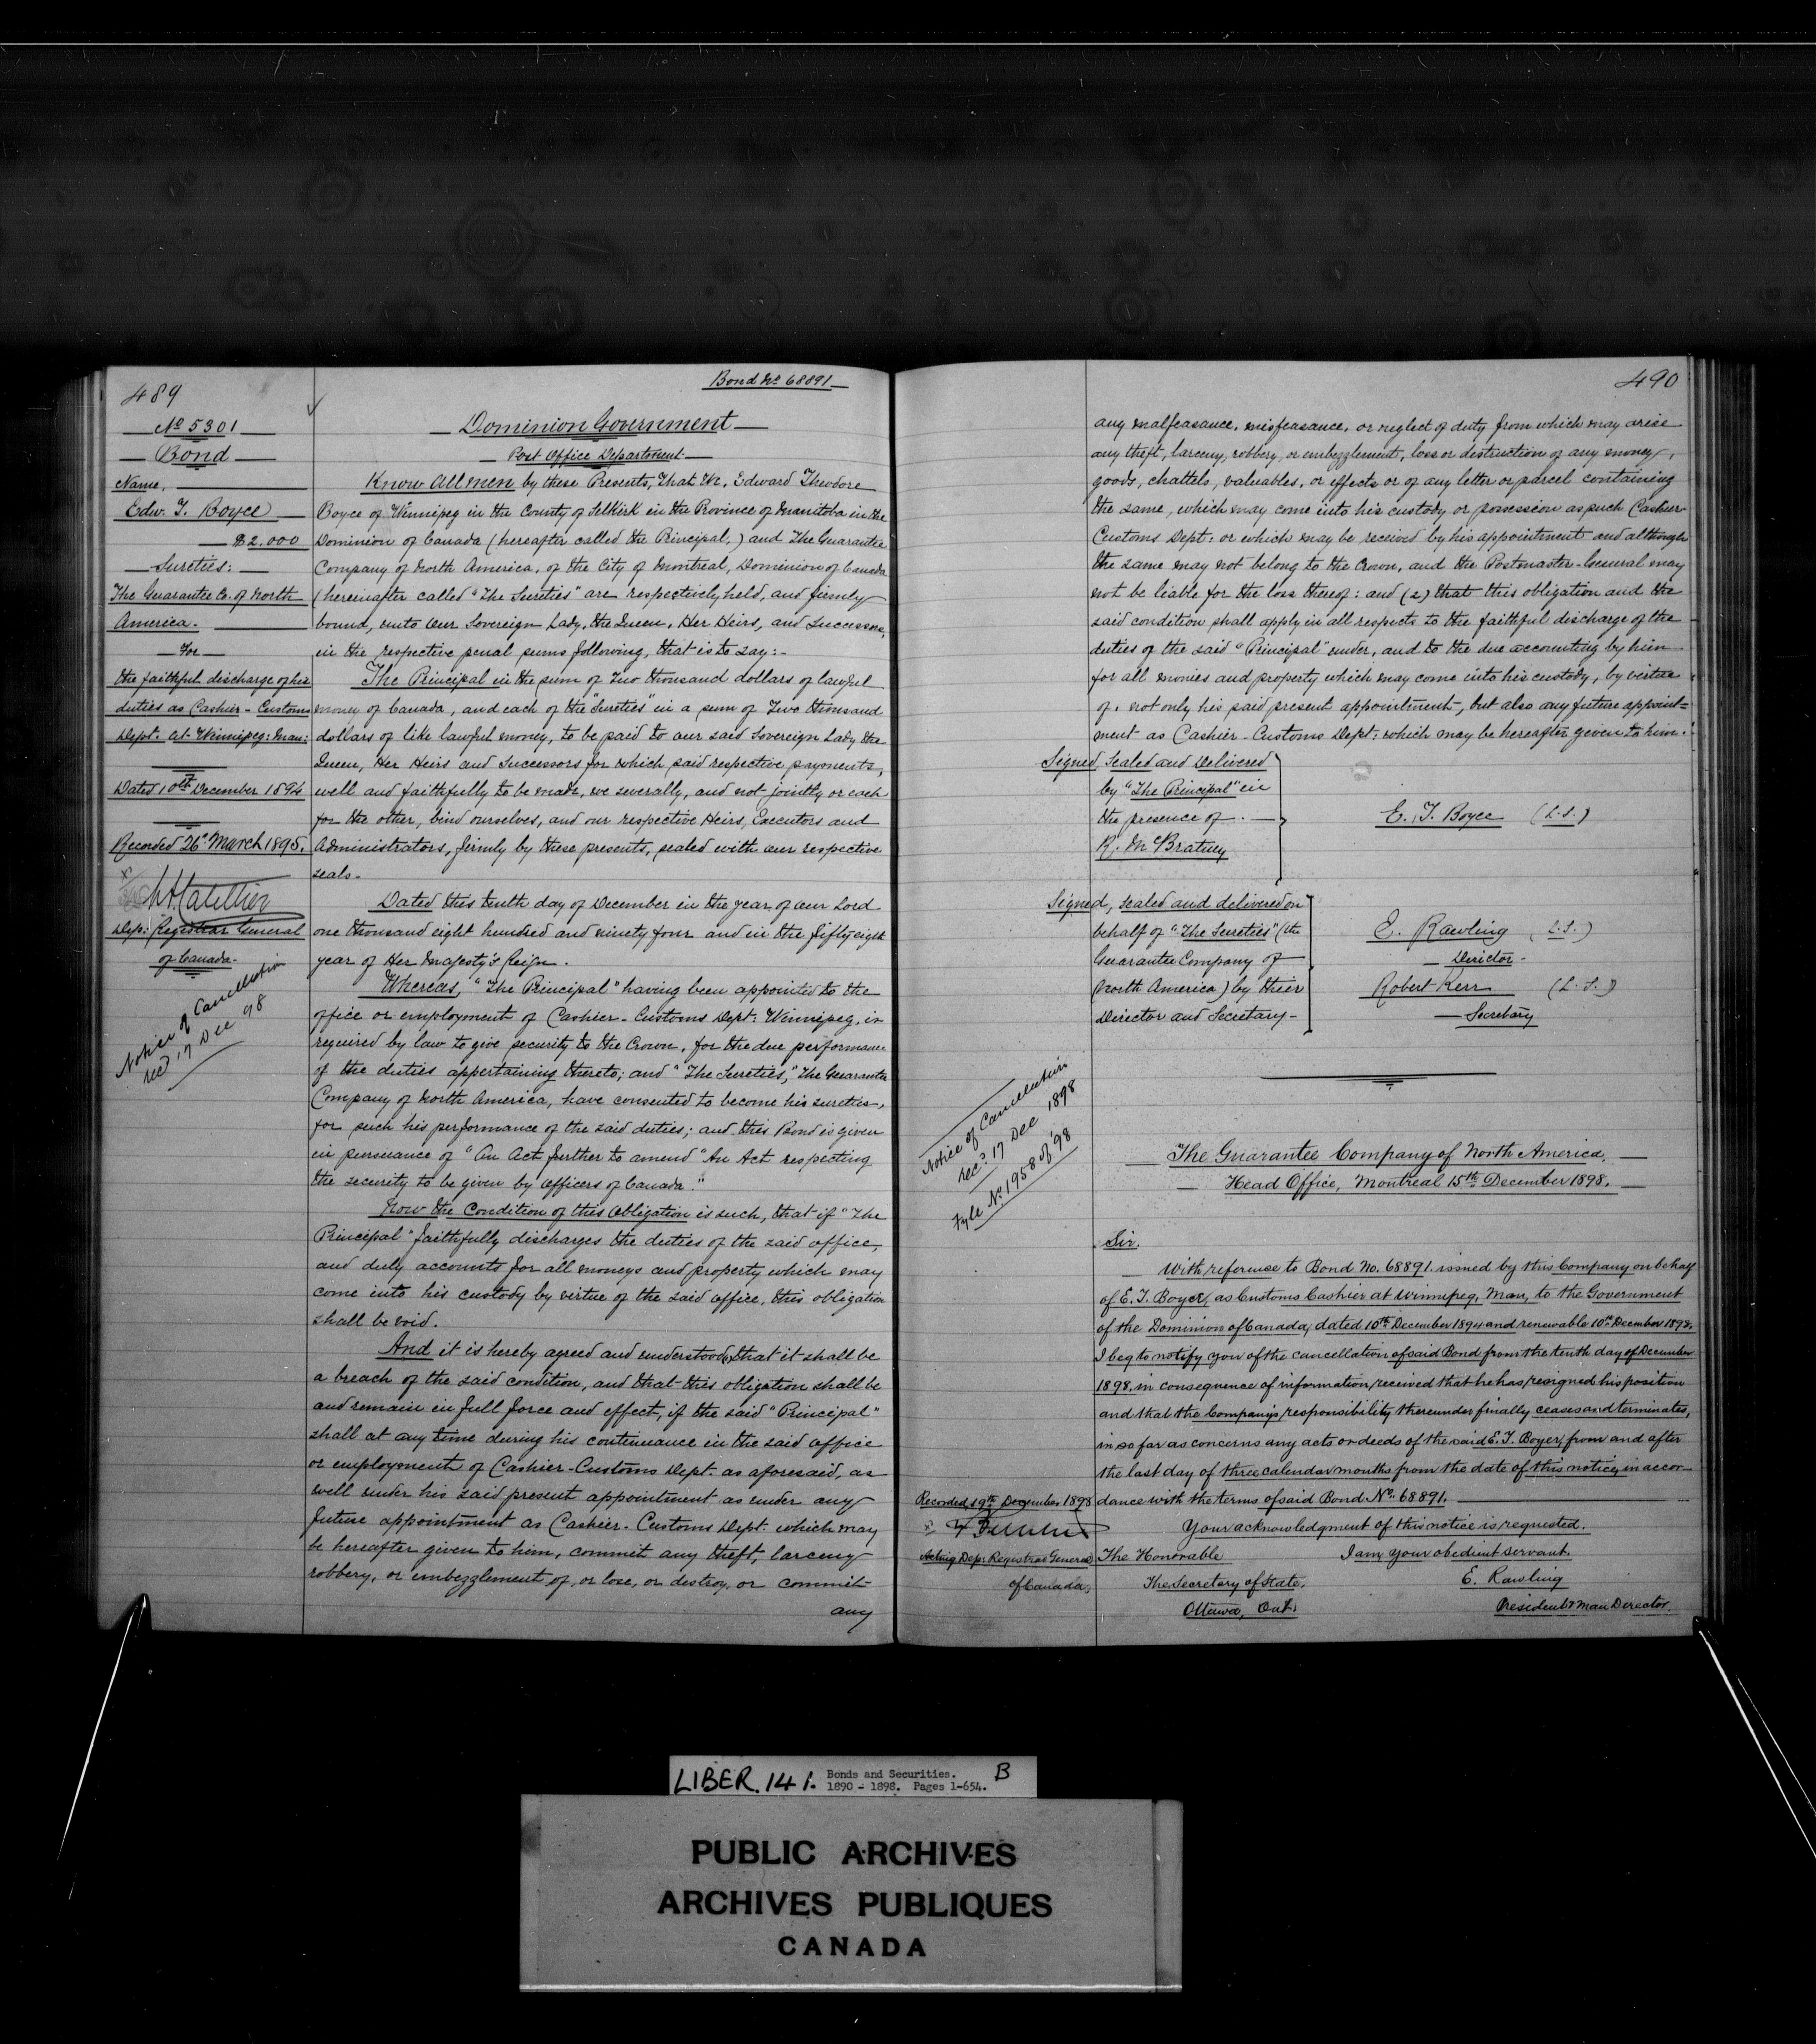 489
Bond No 68891
No 5301
Bond
Name,
Edw. T. Boyce
$2.000
Sureties:
The Guarantee Co. of North
America.
For
the faithful discharge of his
duties as Cashier - Customs
Dept. at Winnipeg: Man:
Dated 10th December 1894
Recorded 26th March 1895.
Dep: Registrar General
of Canada.
Notice of Cancellation
rec'd 17 Dec 98
Dominion Government
Post Office Department
Know All men by these Presents, That We, Edward Theodore
Boyce of Winnipeg in the County of Selkirk in the Province of Manitoba in the
Dominion of Canada (hereafter called the Principal,) and The Guarantee
Company of North America, of the City of Montreal, Dominion of Canada
(hereinafter called "The Sureties" are respectively held, and firmly
bound, unto Our Sovereign Lady, the Queen, Her Heirs, and Successors,
in the respective penal sums following, that is to say:-
The Principal in the sum of Two thousand dollars of lawful
money of Canada, and each of the "Sureties" in a sum of Two thousand
dollars of like lawful money, to be paid to our said Sovereign Lady the
Queen, Her Heirs and Successors for which said respective payments,
well and faithfully to be made, we severally, and not jointly or each
for the other, bind ourselves, and our respective Heirs, Executors and
Administrators, firmly by these presents, sealed with our respective
seals.
Dated this tenth day of December in the year of Our Lord
one thousand eight hundred and ninety four and in the fifty eight
year of Her Majesty's Reign.
Whereas, "The Principal" having been appointed to the
office or employment of Cashier - Customs Dept: Winnipeg, is
required by law to give security to the Crown, for the due performance
of the duties appertaining thereto; and "The Sureties," The Guarantee
Company of North America, have consented to become his sureties,
for such his performance of the said duties; and this Bond is given
in persuance of "An Act further to amend "An Act respecting
the security to be given by Officers of Canada."
Now the Condition of this Obligation is such, that if "The
Principal" faithfully discharges the duties of the said office,
and duly accounts for all moneys and property which may
come into his custody by virtue of the said office, this obligation
shall be void.
And it is hereby agreed and understood, that it shall be
a breach of the said condition, and that this obligation shall be
and remain in full force and effect, if the said "Principal"
shall at any time during his continuance in the said office
or employment of Cashier - Customs Dept. as aforesaid, as
well under his said present appointment as under any
future appointment as Cashier - Customs Dept. which may
be hereafter given to him, commit any theft, larceny
robbery, or embezzlement of, or lose, or destroy, or commit
any
490
any malfeasance, misfeasance, or neglect of duty from which may arise
any theft, larceny, robbery, or embezzlement, loss or distruction of any money,
goods, chattels, valuables, or effects or of any letter or parcel containing
the same, which may come into his custody or possession as such Cashier
Customs Dept: or which may be received by his appointment and although
the same may not belong to the Crown, and the Postmaster-General may
not be liable for the loss thereof: and (2) that this obligation and the
said condition shall apply in all respects to the faithful discharge of the
duties of the said "Principal" under, and to the due accounting by him
for all monies and property which may come into his custody, by virtue
of, not only his said present appointment, but also any future appoint=
ment as Cashier - Customs Dept: which may be hereafter given to him.
Signed, Sealed and Delivered
by "The Principal" in
the presence of.
R. McBratney
E. T. Boyce (L.S.)
Signed, sealed and delivered on
behalf of "The Sureties" (the
Guarantee Company of
North America) by their
Director and Secretary -
E. Rawling (L.S.)
Director -
Robert Kerr (L.S.)
Secretary
Notice of Cancellation
rec'd 17 Dec 1898
Fyle No 1958 of '98
The Guarantee Company of North America,
Head Office, Montreal 15th December 1898.
Sir,
With reference to Bond No. 68891 issued by this Company on behalf
of E. T. Boyce, as Customs Cashier at Winnipeg, Man, to the Government
of the Dominion of Canada, dated 10th December 1894 and renewable 10th December 1898,
I beg to notify you of the cancellation of said Bond from the tenth day of December
1898, in consequence of information received that he has resigned his position
and that the Company's responsibility thereunder finally ceases and terminates,
in so far as concerns any acts or deeds of the said E. T. Boyce, from and after
the last day of three calendar months from the date of this notice, in accor-
dance with the terms of said Bond No. 68891.
Your acknowledgment of this notice is requested.
Recorded 19th December 1898
Acting Dep: Registrar General
of Canada
The Honorable
The Secretary of State,
Ottawa, Ont.
I am, your obedient servant.
E. Rawling
President & Man Director.
LIBER. 141. Bonds and Securities. B
1890 - 1898. Pages 1-654.
PUBLIC ARCHIVES
ARCHIVES PUBLIQUES
CANADA